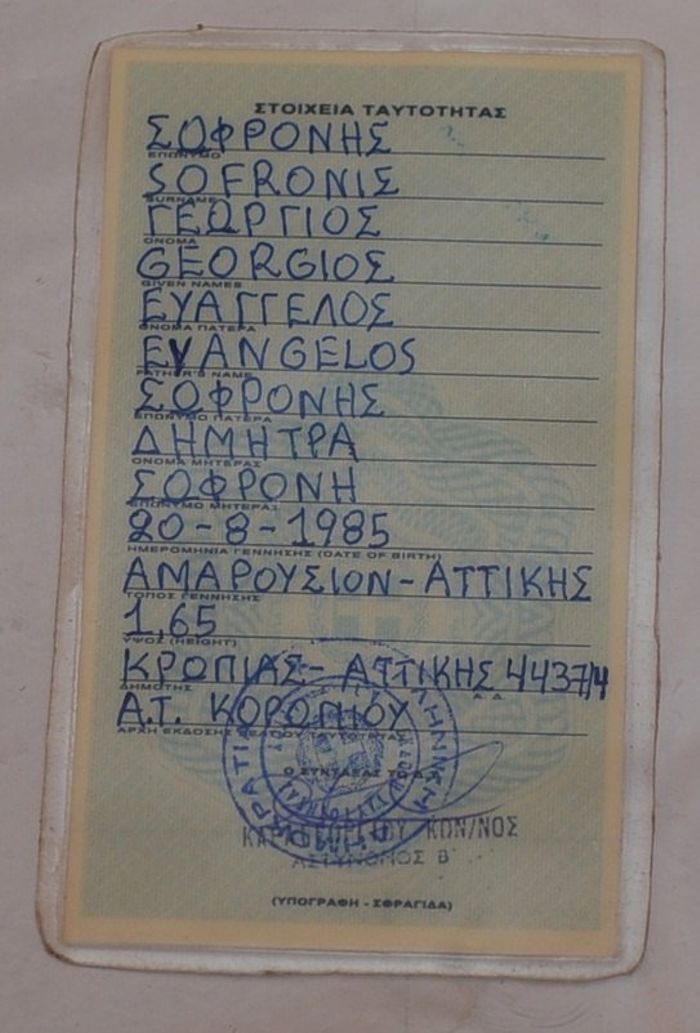 ΣΤΟΙΧΕΙΑ ΤΑΥΤΟΤΗΤΑΣ
ΣΩΦΡΟΝΗΣ
ΕΠΩΝΥΜΟ
SOFRONIΣ
SURNAME
ΓΕΩΡΓΙΟΣ
ΟΝΟΜΑ
GEORGIOΣ
GIVEN NAMES
ΕΥΑΓΓΕΛΟΣ
ΟΝΟΜΑ ΠΑΤΕΡΑ
EVANGELOS
FATHER'S NAME
ΣΩΦΡΟΝΗΣ
ΕΠΩΝΥΜΟ ΠΑΤΕΡΑ
ΔΗΜΗΤΡΑ
ΟΝΟΜΑ ΜΗΤΕΡΑΣ
ΣΩΦΡΟΝΗ
ΕΠΩΝΥΜΟ ΜΗΤΕΡΑΣ
20-8-1985
ΗΜΕΡΟΜΗΝΙΑ ΓΕΝΝΗΣΗΣ (DATE OF BIRTH)
ΑΜΑΡΟΥΣΙΟΝ-ΑΤΤΙΚΗΣ
ΤΟΠΟΣ ΓΕΝΝΗΣΗΣ
1,65
ΥΨΟΣ (HEIGHT)
ΚΡΩΠΙΑΣ-ΑΤΤΙΚΗΣ 4437/4
ΔΗΜΟΤΗΣ Α.Δ.
Α.Τ. ΚΟΡΩΠΙΟΥ
ΑΡΧΗ ΕΚΔΟΣΗΣ ΔΕΛΤΙΟΥ ΤΑΥΤΟΤΗΤΑΣ
Ο ΣΥΝΤΑΞΑΣ ΤΟ Δ.Τ.
ΚΩΝ/ΝΟΣ
ΑΣΤΥΝΟΜΟΣ Β΄
(ΥΠΟΓΡΑΦΗ - ΣΦΡΑΓΙΔΑ)